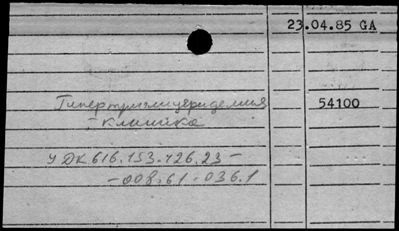 23.04.85 GA
Гипертриглицеридемия 54100
- клиника
УДК 616.153.426.23 -
- 008.61 - 036.1